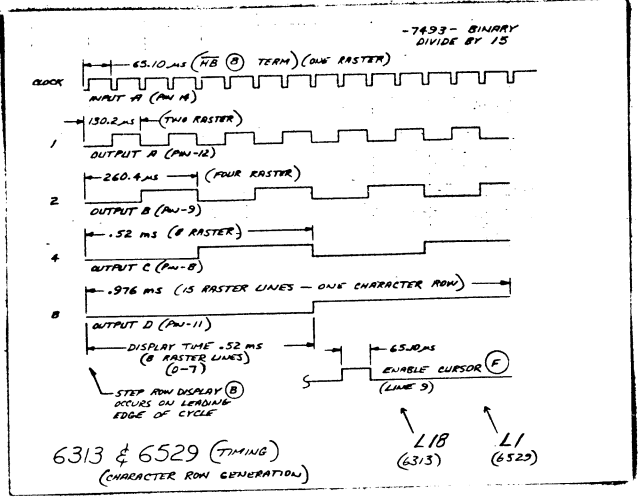 -7493- BINARY
DIVIDE BY 15
65.10 µs (HB Ⓑ TERM) (ONE RASTER)
CLOCK
INPUT A (PIN 14)
130.2 µs (TWO RASTER)
1
OUTPUT A (PIN-12)
260.4 µs (FOUR RASTER)
2
OUTPUT B (PIN-9)
.52 ms (8 RASTER)
4
OUTPUT C (PIN-8)
.976 ms (15 RASTER LINES - ONE CHARACTER ROW)
8
OUTPUT D (PIN-11)
DISPLAY TIME .52 ms
(8 RASTER LINES)
(0-7)
65.10 µs
ENABLE CURSOR Ⓕ
(LINE 9)
STEP ROW DISPLAY Ⓑ
OCCURS ON LEADING
EDGE OF CYCLE
L18
(6313)
L1
(6529)
6313 & 6529 (TIMING)
(CHARACTER ROW GENERATION)